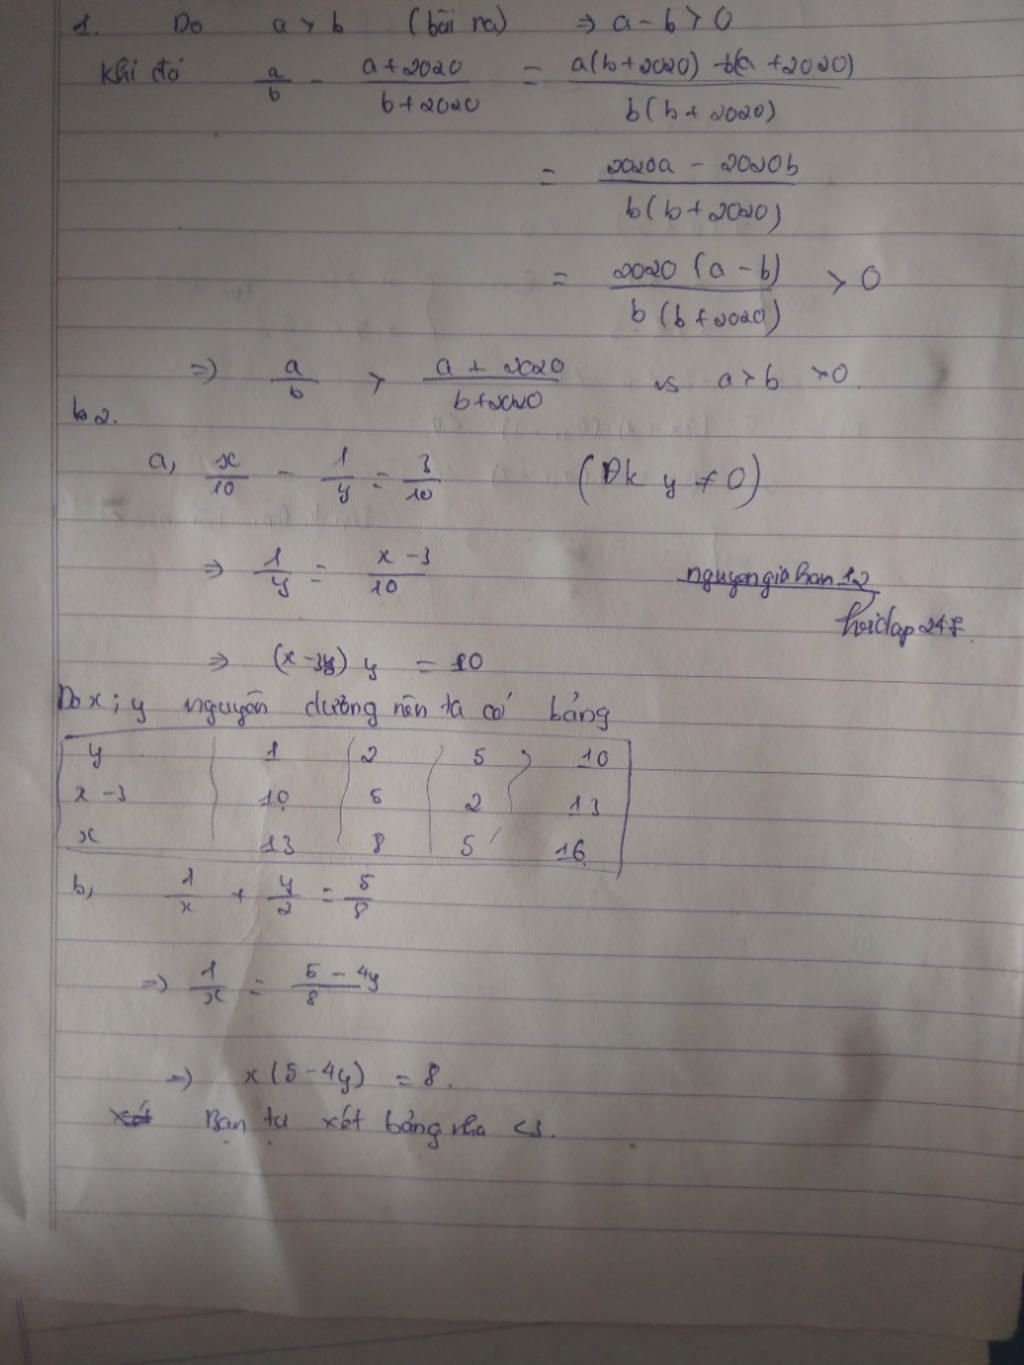 1. Do a > b (bài ra) ⇒ a - b > 0
Khi đó a/b - (a+2020)/(b+2020) = (a(b+2020) - b(a+2020))/(b(b+2020))
= (2020a - 2020b)/(b(b+2020))
= (2020(a-b))/(b(b+2020)) > 0
⇒ a/b > (a+2020)/(b+2020) vs a>b >0.
b2.
a, x/10 - 1/y = 3/10 (Đk y ≠ 0)
⇒ 1/y = (x-3)/10
nguyengiahan12
hoidap247
⇒ (x-3) y = 10
Do x; y nguyên dương nên ta có bảng
y 1 2 5 10
x -3 10 5 2 13
x 13 8 5 16
b, 1/x + y/2 = 5/8
⇒ 1/x = (5 - 4y)/8
⇒ x(5-4y) = 8.
Bạn tự xét bảng nha <3.